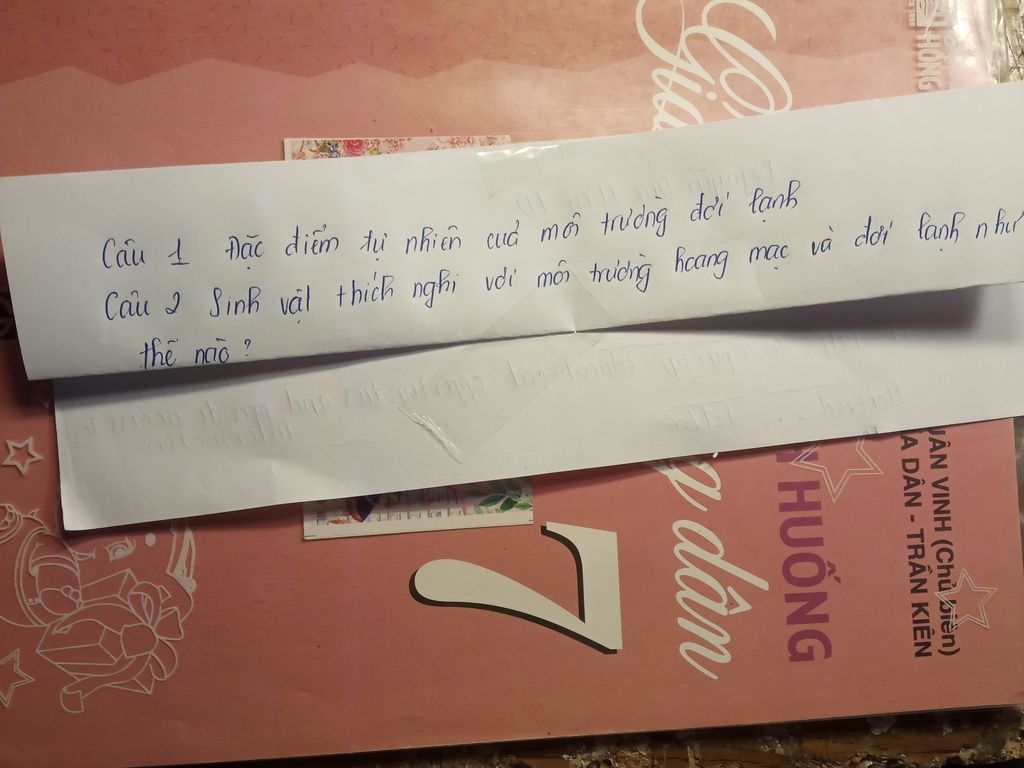 Câu 1 Đặc điểm tự nhiên của môi trường đới lạnh
Câu 2 Sinh vật thích nghi với môi trường hoang mạc và đới lạnh như
thế nào?
HUỐNG
dân
7
UÂN VINH (Chủ biên)
A DÂN - TRẦN KIÊN
HỒNG